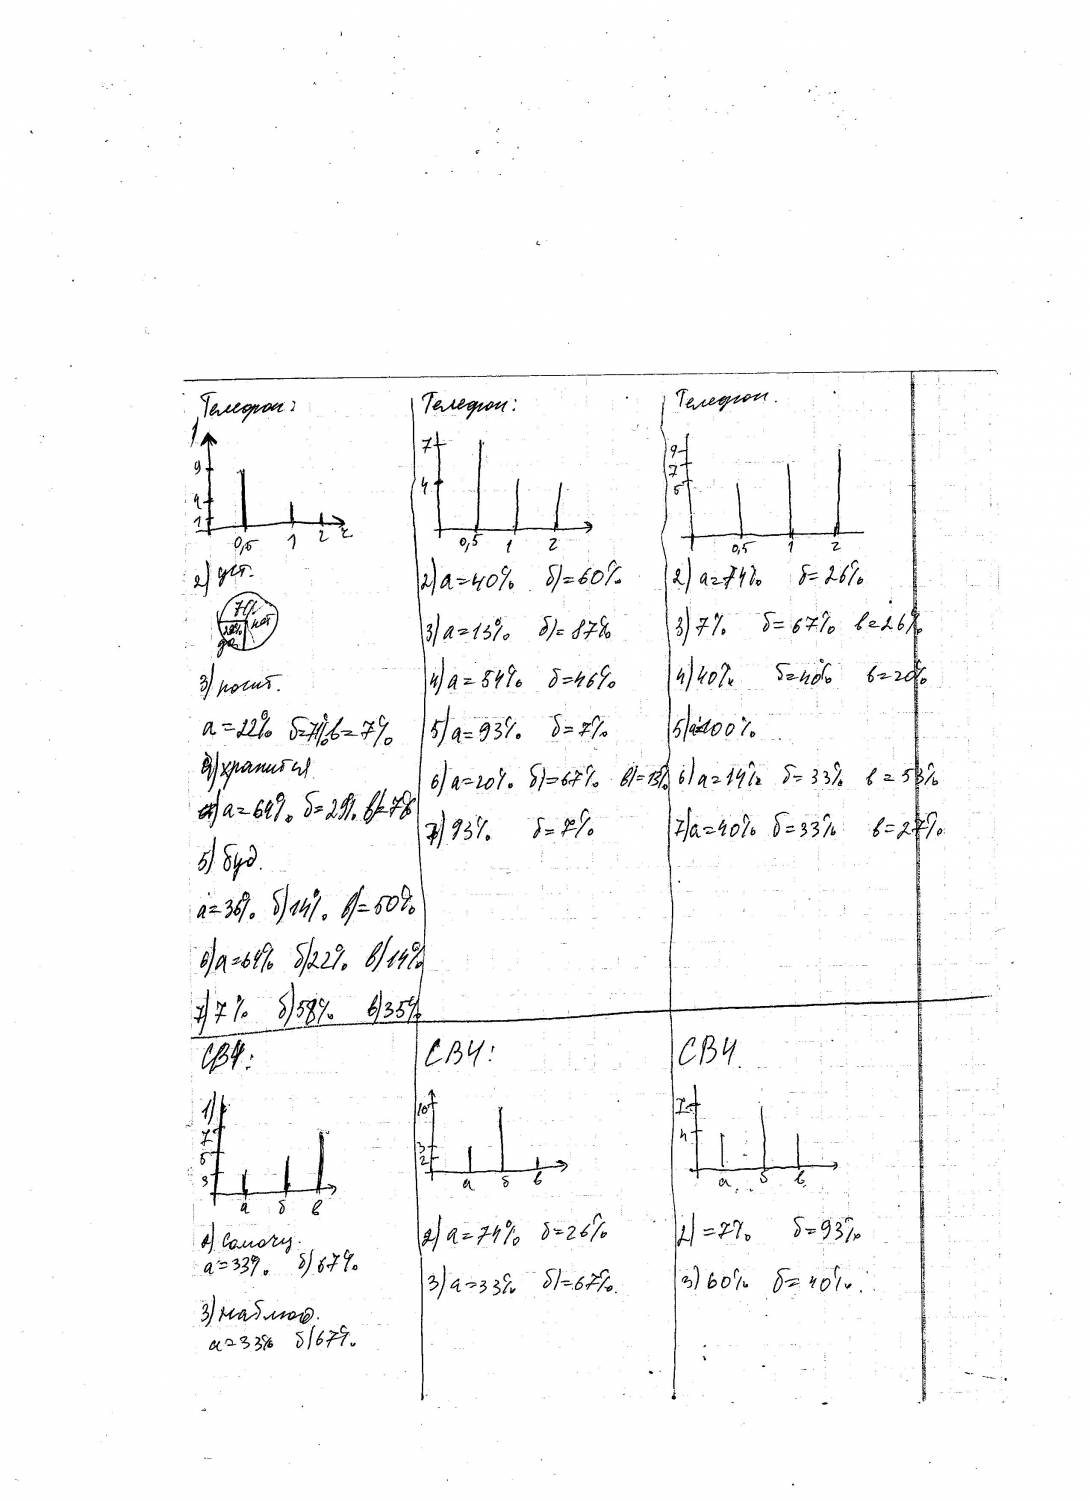 Телефон:
1
9
4
1
0,5 1 2 ч
2) уст.
71%
нет
22%
да
3) носит.
а=22% б=71% в=7%
4) хранится
а=64% б=29% в)=7%
5) буд.
а=36% б)14% в)=50%
6) а=64% б)22% в)14%
7) 7% б)58% в)35%
Телефон:
7
4
0,5 1 2
2) а=40% б)=60%
3) а=13% б)=87%
4) а=54% б=46%
5) а=93% б=7%
6) а=20% б)=67% в)=13%
7) 93% б=7%
Телефон.
9
7
5
0,5 1 2
2) а=74% б=26%
3) 7% б=67% в=26%
4) 40% б=40% в=20%
5) а=100%
6) а=14% б=33% в=53%
7) а=40% б=33% в=27%
СВЧ:
1)
7
5
3
а б в
2)
а=33% б)67%
3) наблюд.
а=33% б)67%
СВЧ:
10
3
2
а б в
2) а=74% б=26%
3) а=33% б)=67%
СВЧ
7
4
а б в
2) =7% б=93%
3) 60% б=40%